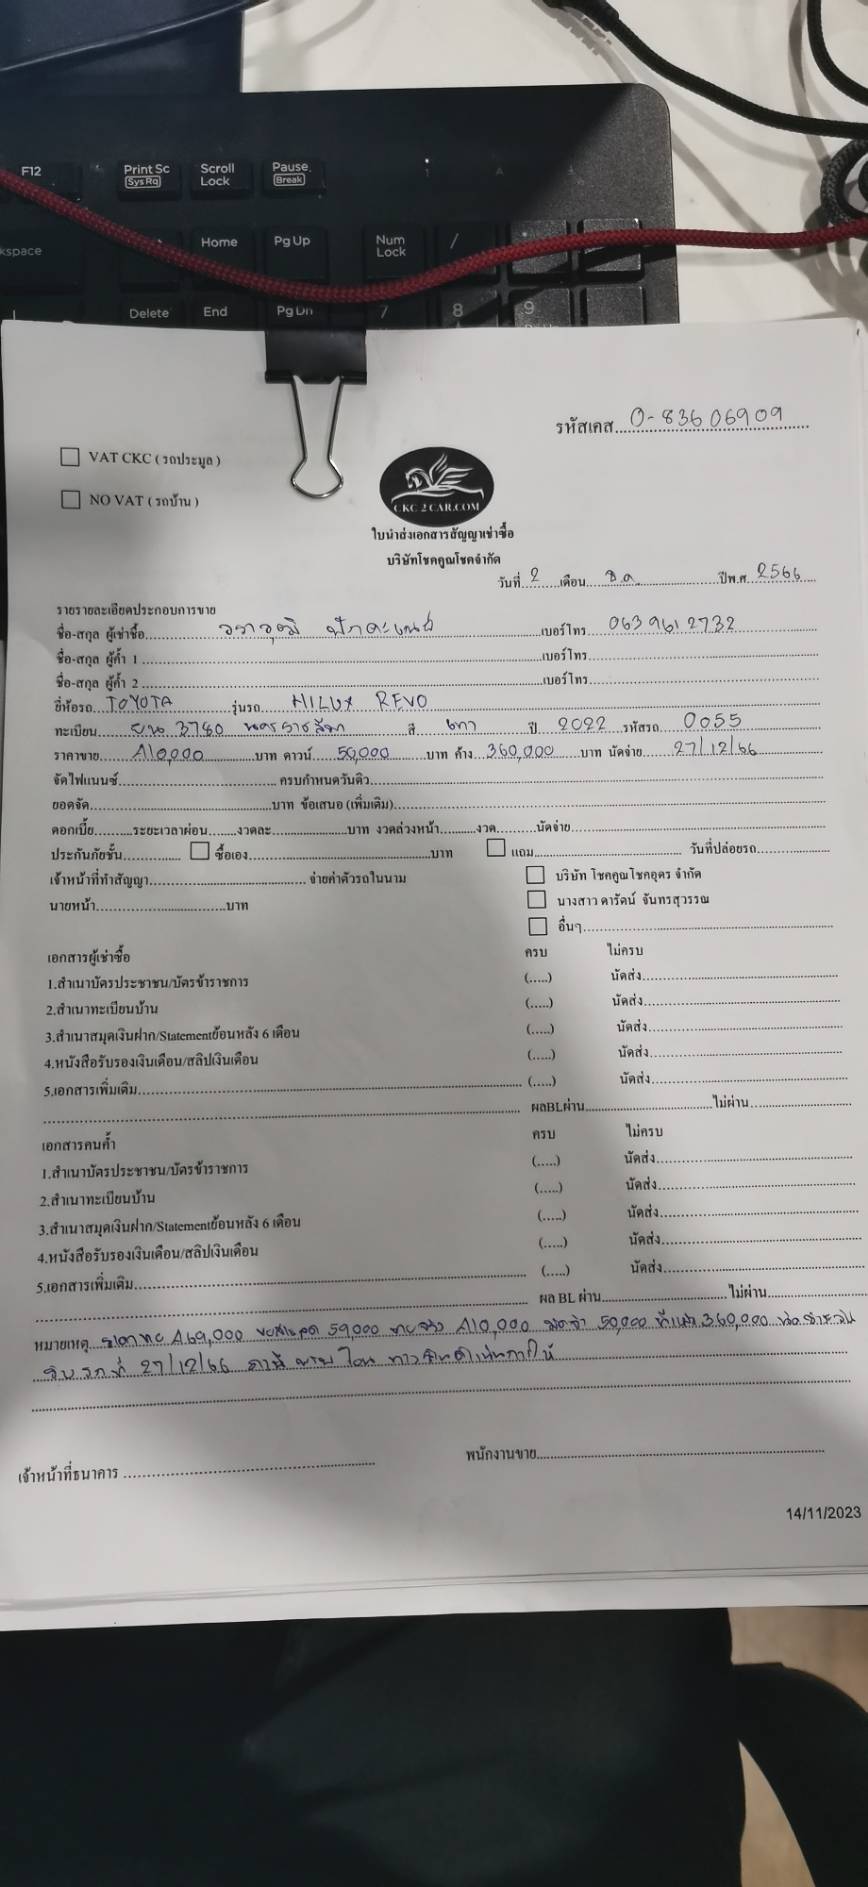 F12
Print Sc
SysRq
Scroll
Lock
Pause
Break
kspace
Home
PgUp
Num
Lock
/
Delete
End
PgDn
7
8
9
รหัสเคส 0-83606909
VAT CKC ( รถประมูล )
NO VAT ( รถบ้าน )
CKC 2 CAR.COM
ใบนำส่งเอกสารสัญญาเช่าซื้อ
บริษัทโชคคูณโชคจำกัด
วันที่ 2 เดือน ธ.ค. ปีพ.ศ. 2566
รายรายละเอียดประกอบการขาย
ชื่อ-สกุล ผู้เช่าซื้อ เบอร์โทร 0639612732
ชื่อ-สกุล ผู้ค้ำ 1 เบอร์โทร
ชื่อ-สกุล ผู้ค้ำ 2 เบอร์โทร
ยี่ห้อรถ TOYOTA รุ่นรถ HILUX REVO
ทะเบียน 3780 นครราชสีมา สี เทา ปี 2022 รหัสรถ 0055
ราคาขาย 410,000 บาท ดาวน์ 50,000 บาท ค้าง 360,000 บาท นัดจ่าย 27/12/66
จัดไฟแนนซ์ ครบกำหนดวันคิว
ยอดจัด บาท ข้อเสนอ (เพิ่มเติม)
ดอกเบี้ย ระยะเวลาผ่อน งวดละ บาท งวดล่วงหน้า งวด นัดจ่าย
ประกันภัยชั้น ซื้อเอง บาท แถม วันที่ปล่อยรถ
เจ้าหน้าที่ทำสัญญา จ่ายค่าตัวรถในนาม บริษัท โชคคูณโชคอุดร จำกัด
นายหน้า บาท นางสาว ดารัตน์ จันทรสุวรรณ
อื่นๆ
เอกสารผู้เช่าซื้อ ครบ ไม่ครบ
1.สำเนาบัตรประชาชน/บัตรข้าราชการ (.....) นัดส่ง
2.สำเนาทะเบียนบ้าน (.....) นัดส่ง
3.สำเนาสมุดเงินฝาก/Statementย้อนหลัง 6 เดือน (.....) นัดส่ง
4.หนังสือรับรองเงินเดือน/สลิปเงินเดือน (.....) นัดส่ง
5.เอกสารเพิ่มเติม (.....) นัดส่ง
ผลBLผ่าน ไม่ผ่าน
เอกสารคนค้ำ ครบ ไม่ครบ
1.สำเนาบัตรประชาชน/บัตรข้าราชการ (.....) นัดส่ง
2.สำเนาทะเบียนบ้าน (.....) นัดส่ง
3.สำเนาสมุดเงินฝาก/Statementย้อนหลัง 6 เดือน (.....) นัดส่ง
4.หนังสือรับรองเงินเดือน/สลิปเงินเดือน (.....) นัดส่ง
5.เอกสารเพิ่มเติม (.....) นัดส่ง
ผล BL ผ่าน ไม่ผ่าน
หมายเหตุ 469,000 59,000 410,000 50,000 360,000
27/12/66
เจ้าหน้าที่ธนาคาร พนักงานขาย
14/11/2023